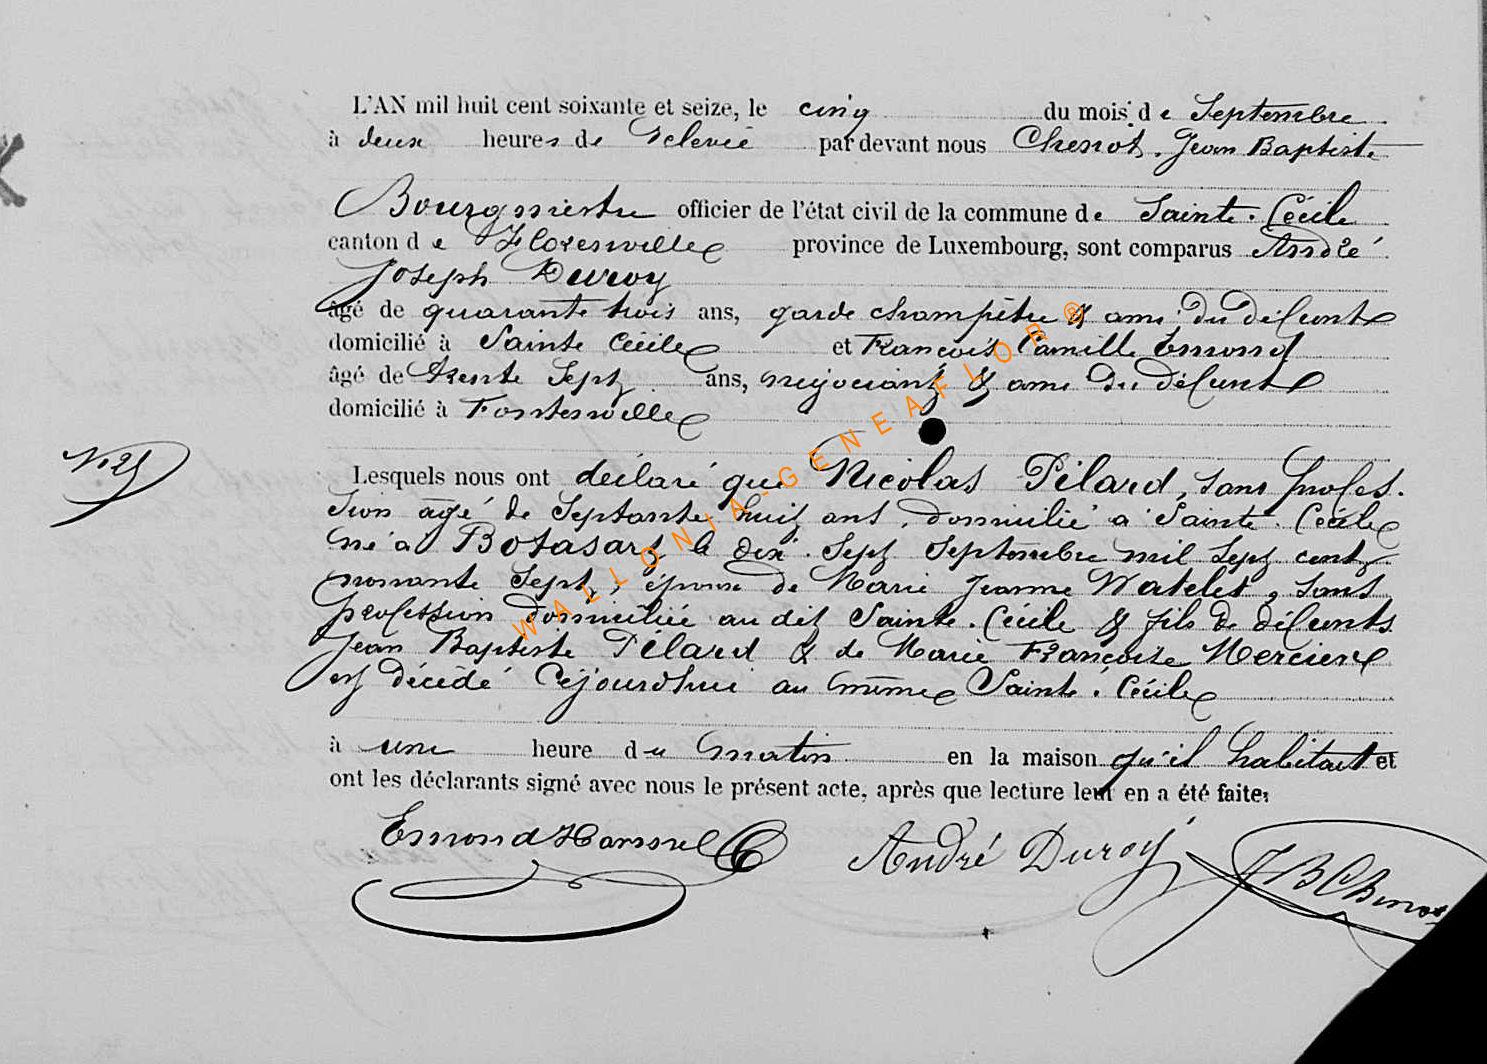 L'AN mil huit cent soixante et seize, le cinq du mois de Septembre
à deux heures de relevée par devant nous Chenot, Jean Baptiste
Bourgmestre officier de l'état civil de la commune de Sainte-Cécile
canton de Florenville province de Luxembourg, sont comparus André
Joseph Duroy
âgé de quarante trois ans, garde champêtre & ami du défunt
domicilié à Sainte Cécile et François Camille Emond
âgé de trente sept ans, négociant & ami du défunt
domicilié à Fontenoille
N° 25
Lesquels nous ont déclaré que Nicolas Pélard, sans profes-
sion âgé de Septante huit ans, domicilié à Sainte-Cécile
né à Botasart le dix-sept Septembre mil sept cent
nonante sept, époux de Marie Jeanne Watelet, sans
profession domiciliée au dit Sainte-Cécile & fils de défunts
Jean Baptiste Pélard & de Marie Françoise Mercier
est décédé Cejourd'hui au même Sainte-Cécile
à une heure du matin en la maison qu'il habitait et
ont les déclarants signé avec nous le présent acte, après que lecture leur en a été faite.
Emond André Duroy JB Chenot
WALLONIA-GENEAFLOR®